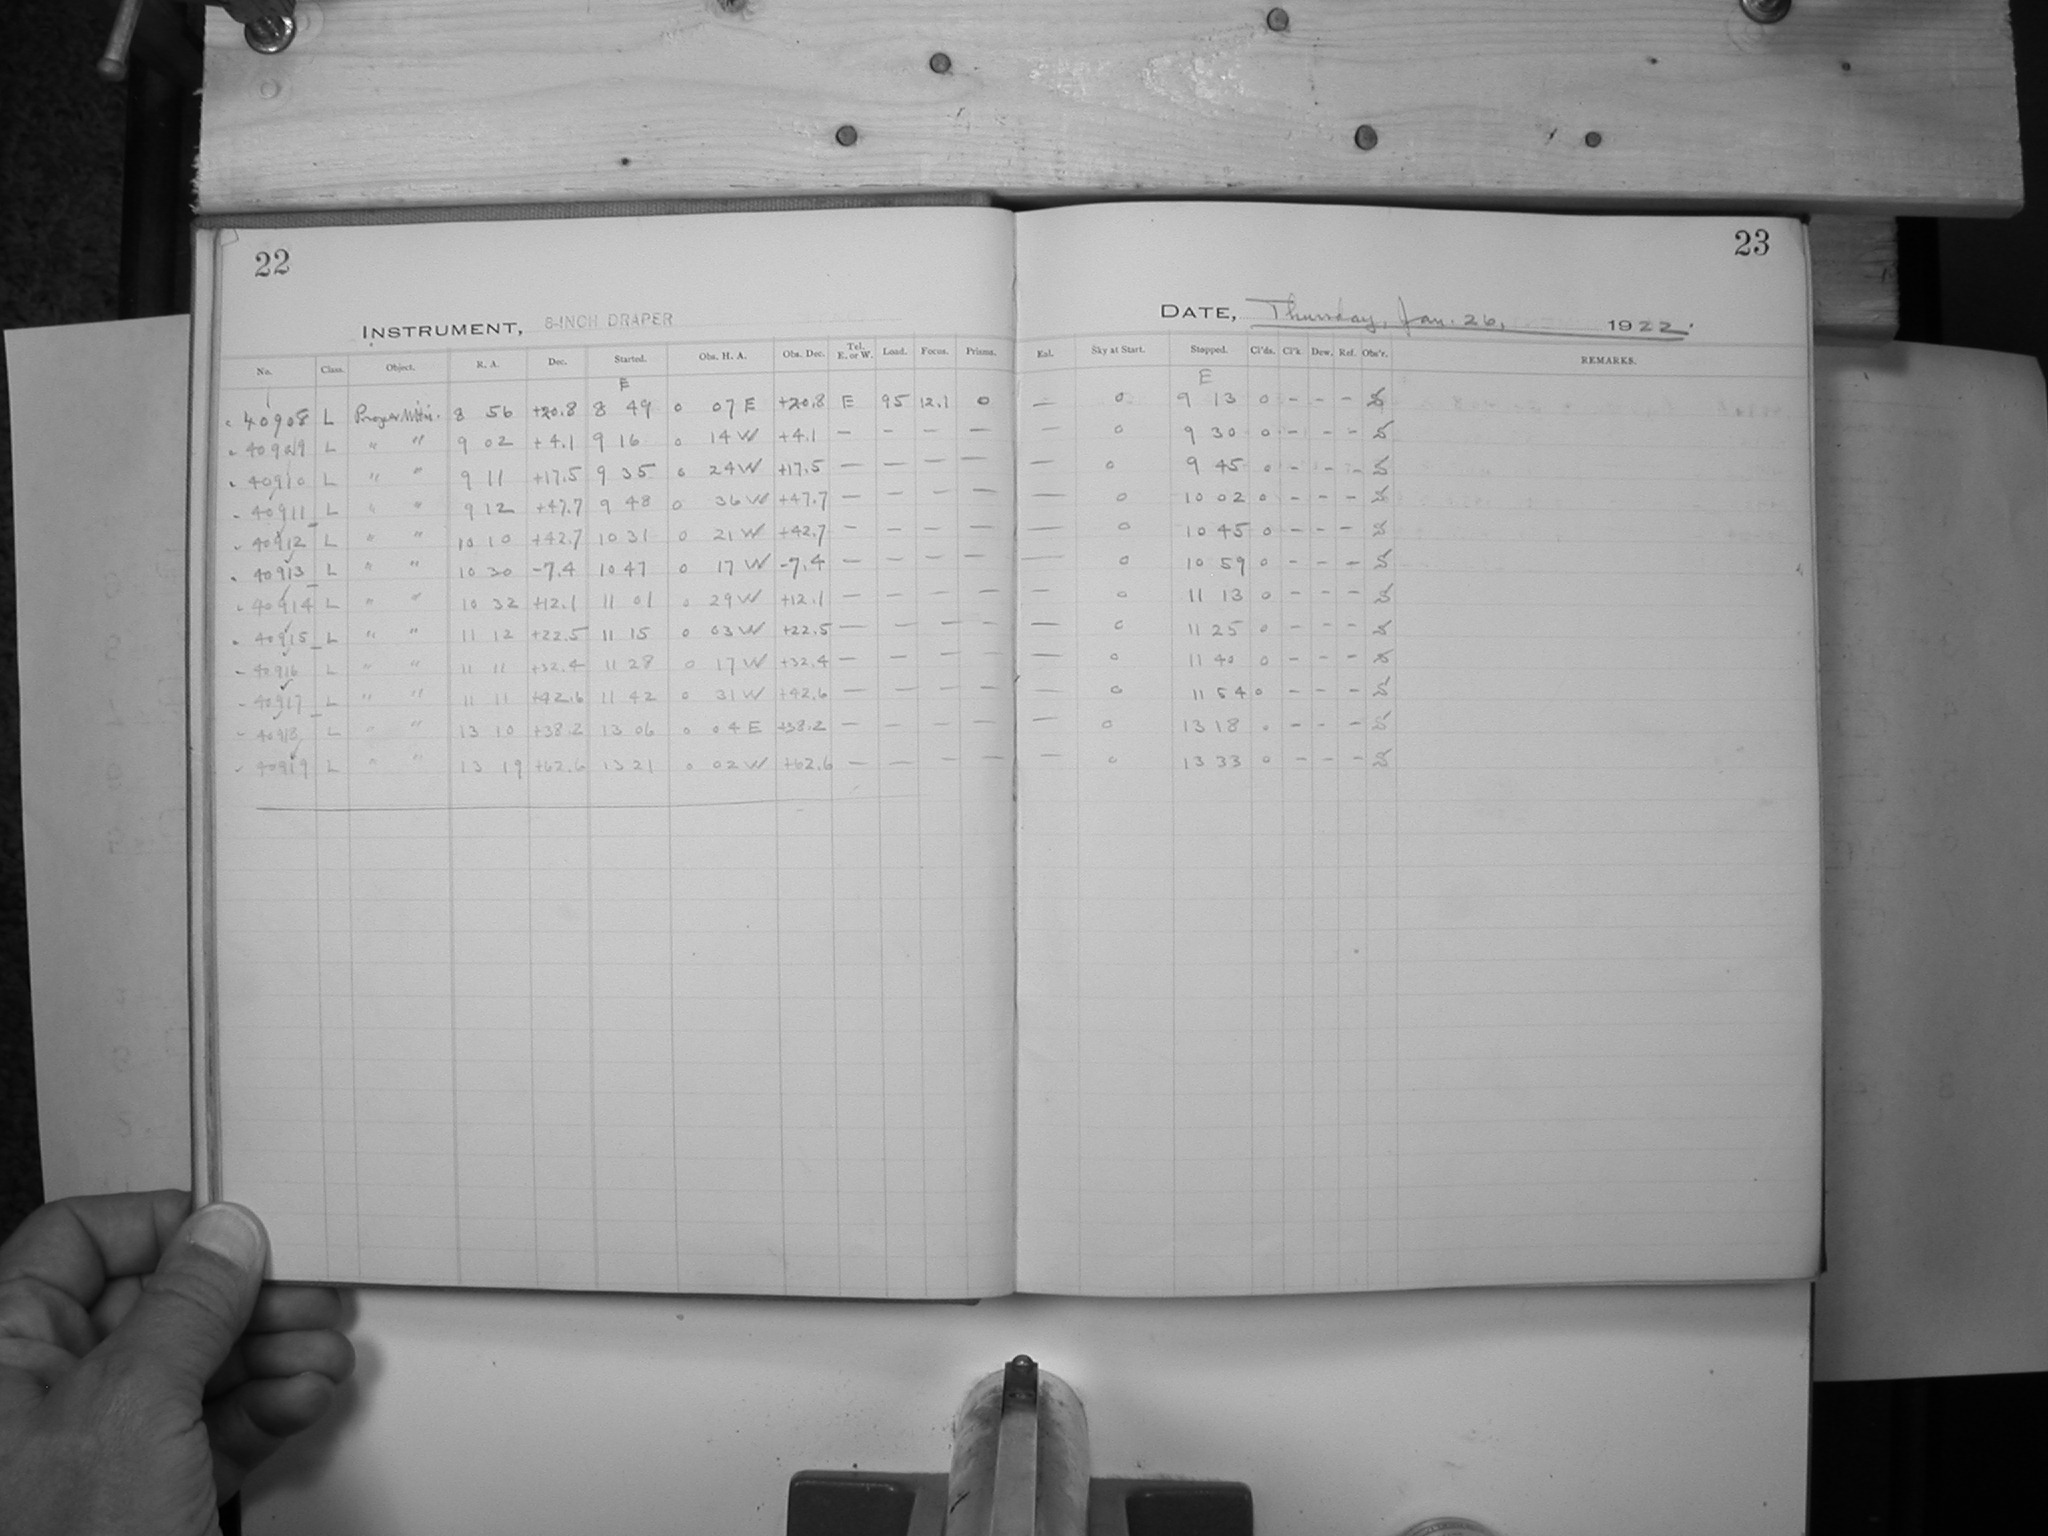 22
INSTRUMENT, 8-INCH DRAPER
No. Class. Object. R. A. Dec. Started. Obs. H. A. Obs. Dec. Tel. E. or W. Load. Focus. Prisms.
E
40908 L Proper Motn. 8 56 +20.8 8 49 0 07 E +20.8 E 95 12.1 0
40909 L " " 9 02 +4.1 9 16 0 14 W +4.1 — — — —
40910 L " " 9 11 +17.5 9 35 0 24 W +17.5 — — — —
40911 L " " 9 12 +47.7 9 48 0 36 W +47.7 — — — —
40912 L " " 10 10 +42.7 10 31 0 21 W +42.7 — — — —
40913 L " " 10 30 -7.4 10 47 0 17 W -7.4 — — — —
40914 L " " 10 32 +12.1 11 01 0 29 W +12.1 — — — —
40915 L " " 11 12 +22.5 11 15 0 03 W +22.5 — — — —
40916 L " " 11 11 +32.4 11 28 0 17 W +32.4 — — — —
40917 L " " 11 11 +42.6 11 42 0 31 W +42.6 — — — —
40918 L " " 13 10 +38.2 13 06 0 04 E +38.2 — — — —
40919 L " " 13 19 +62.6 13 21 0 02 W +62.6 — — — —
23
DATE, Thursday, Jan. 26, 1922.
Eol. Sky at Start. Stopped. Cl'ds. Cl'k. Dew. Ref. Obs'r. REMARKS.
E
— 0 9 13 0 - - -
— 0 9 30 0 - - -
— 0 9 45 0 - - -
— 0 10 02 0 - - -
— 0 10 45 0 - - -
— 0 10 59 0 - - -
— 0 11 13 0 - - -
— 0 11 25 0 - - -
— 0 11 40 0 - - -
— 0 11 54 0 - - -
— 0 13 18 0 - - -
— 0 13 33 0 - - -